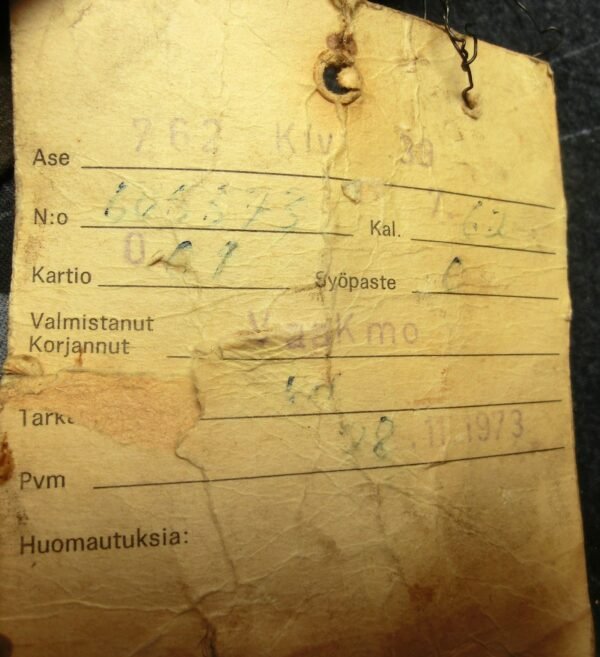 Ase 762 Kiv 39
N:o Kal. 7.62
Kartio 0 Syöpaste
Valmistanut
Korjannut VaaKmo
Tark
Pvm 28.11.1973
Huomautuksia: